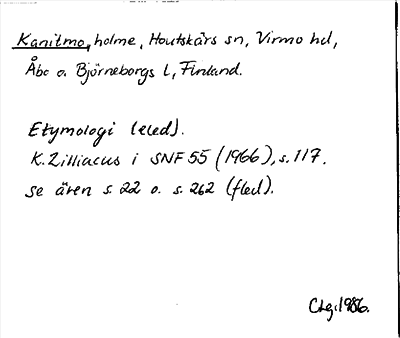 Kanitmo, holme, Houtskärs sn, Virmo hd,
Åbo o. Björneborgs l, Finland.
Etymologi (eled).
K. Zilliacus i SNF 55 (1966), s. 117.
se även s. 22 o. s. 262 (fled).
Ctg. 1986.